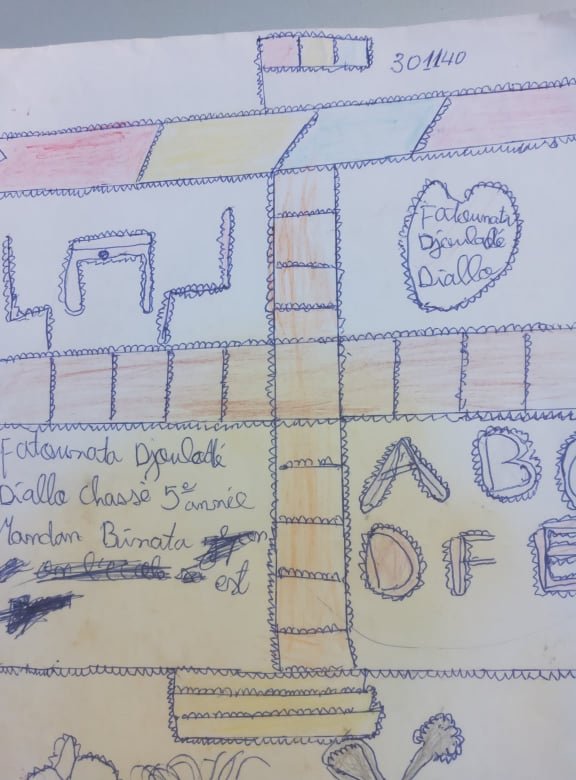 301140
Fatoumata
Djouldé
Diallo
Fatoumata Djouldé
Diallo chassé 5e année
Mandan Binata
est
A B
D F E